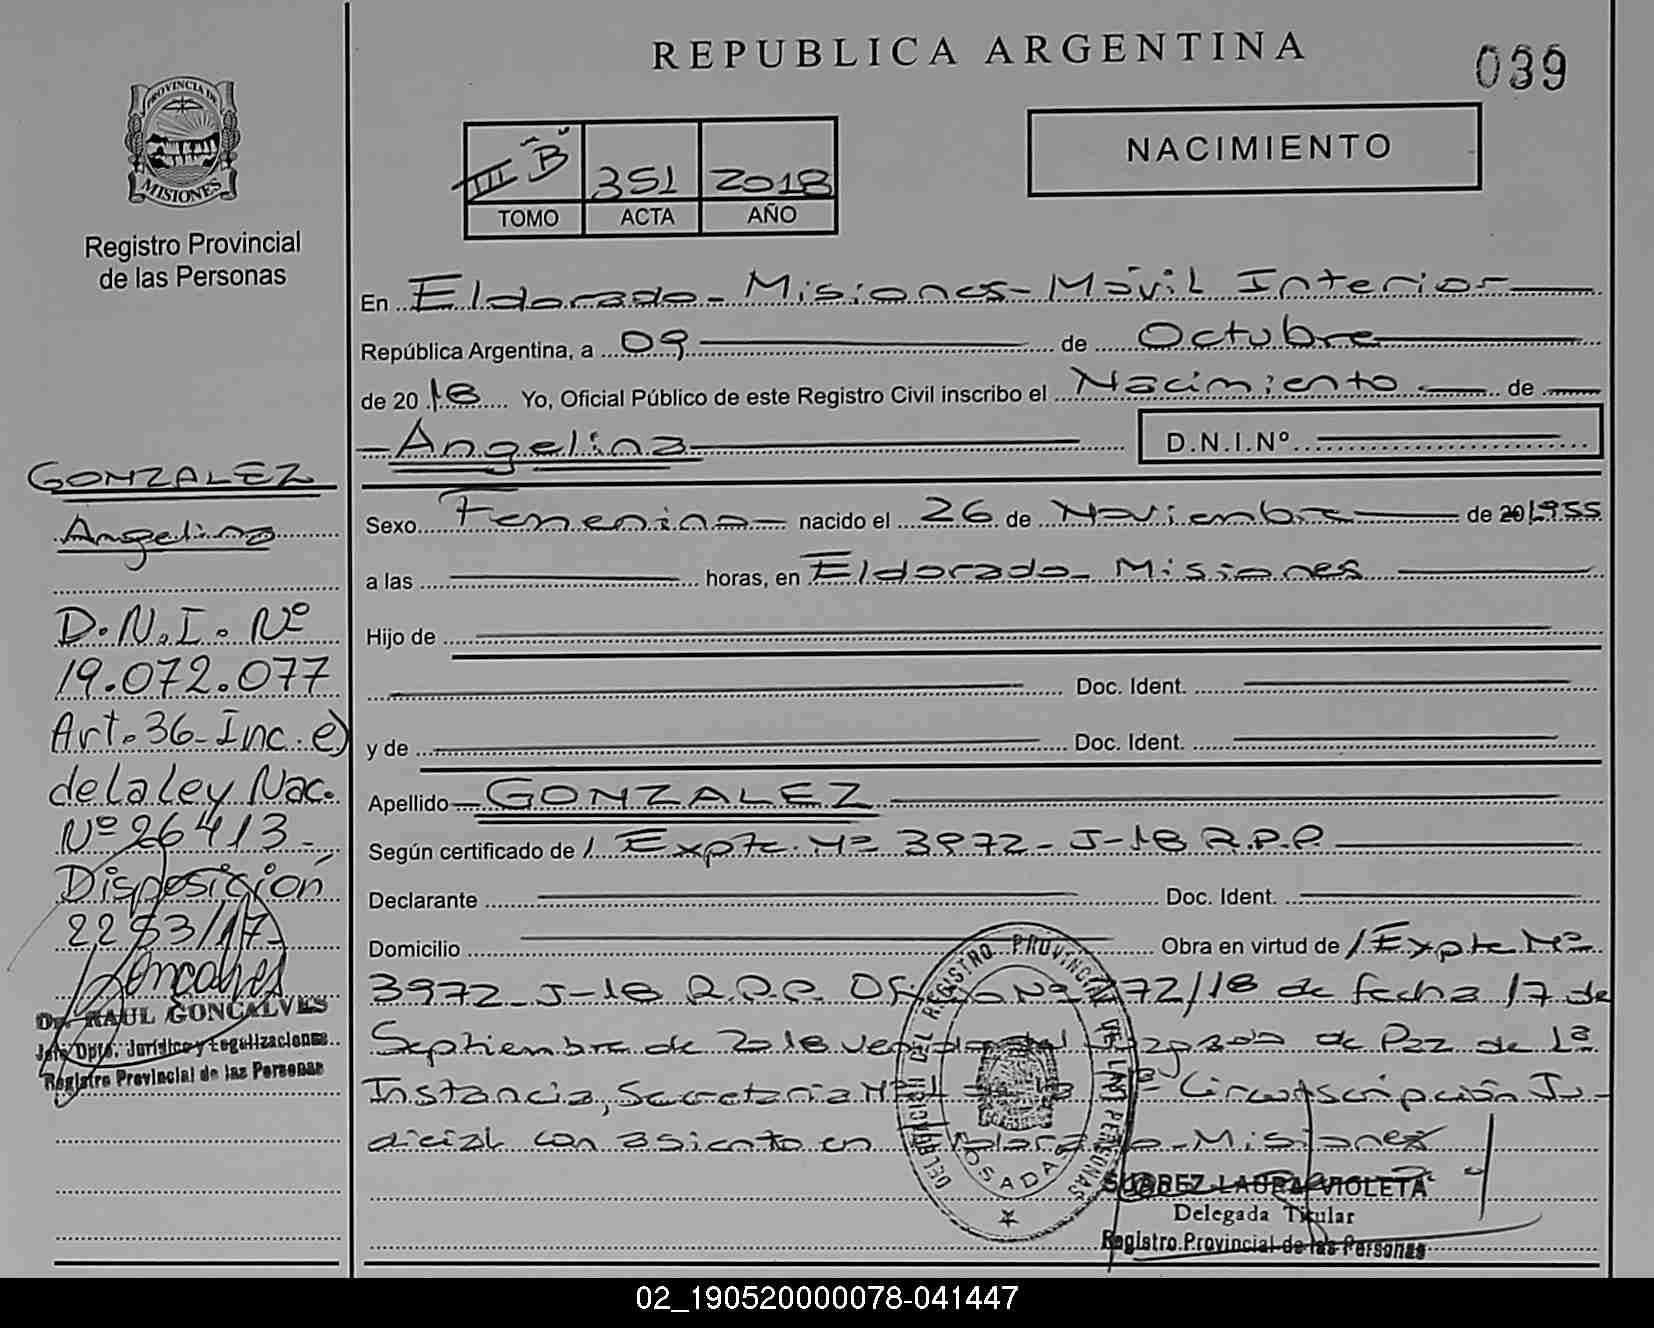 REPUBLICA ARGENTINA
039
PROVINCIA DE
MISIONES
Registro Provincial
de las Personas
III B
351
2018
TOMO
ACTA
AÑO
NACIMIENTO
En Eldorado - Misiones - Móvil Interior
República Argentina, a 09 de Octubre
de 2018 Yo, Oficial Público de este Registro Civil inscribo el Nacimiento de
Angelina D.N.I.Nº
Sexo Femenino nacido el 26 de Noviembre de 20 1955
a las horas, en Eldorado - Misiones
Hijo de
Doc. Ident.
y de Doc. Ident.
Apellido GONZALEZ
Según certificado de / Expte. Nº 3972 - J-18 R.P.P.
Declarante Doc. Ident.
Domicilio Obra en virtud de / Expte Nº
3972 - J-18 R.P.P. 72/18 de fecha 17 de
Septiembre de 2018 de Paz de 1ª
Instancia, Secretaria Nº 1 Circunscripción Ju-
dicial con asiento en Eldorado - Misiones
SUAREZ LAURA VIOLETA
Delegada Titular
Registro Provincial de las Personas
DEL REGISTRO PROVINCIAL DE LAS PERSONAS
POSADAS
GONZALEZ
Angelina
D.N.I. Nº
19.072.077
Art. 36 - Inc. e)
de la ley Nac.
Nº 26413 -
Disposición
2253/17
Goncalves
Dr. RAUL GONCALVES
Jefe Dpto. Jurídico y Legalizaciones
Registro Provincial de las Personas
02_190520000078-041447